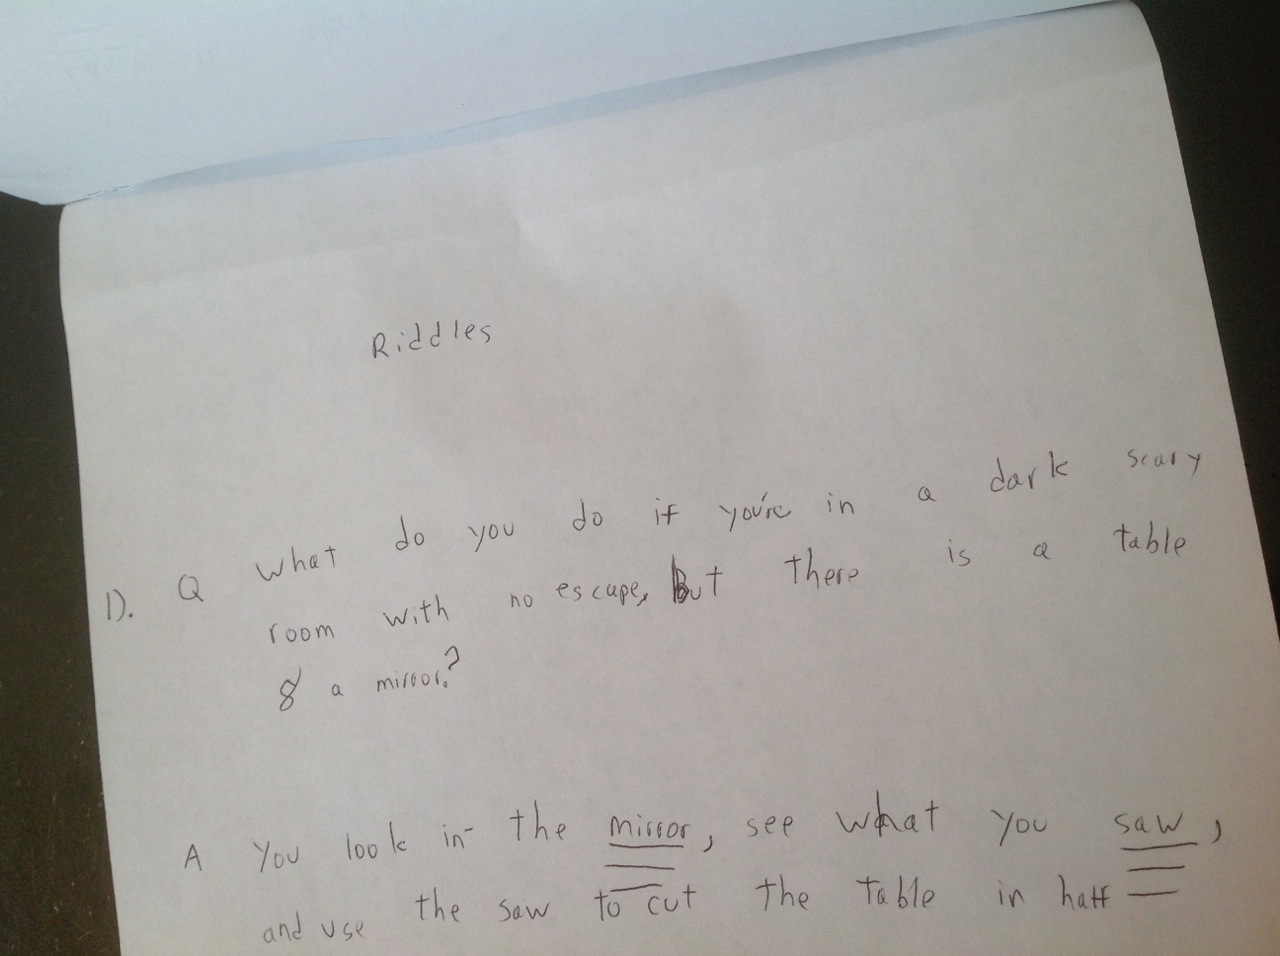 Riddles
1). Q What do you do if you're in a dark scary
room with no escape, But there is a table
& a mirror?
A You look in the mirror, see what you saw,
and use the saw to cut the table in half